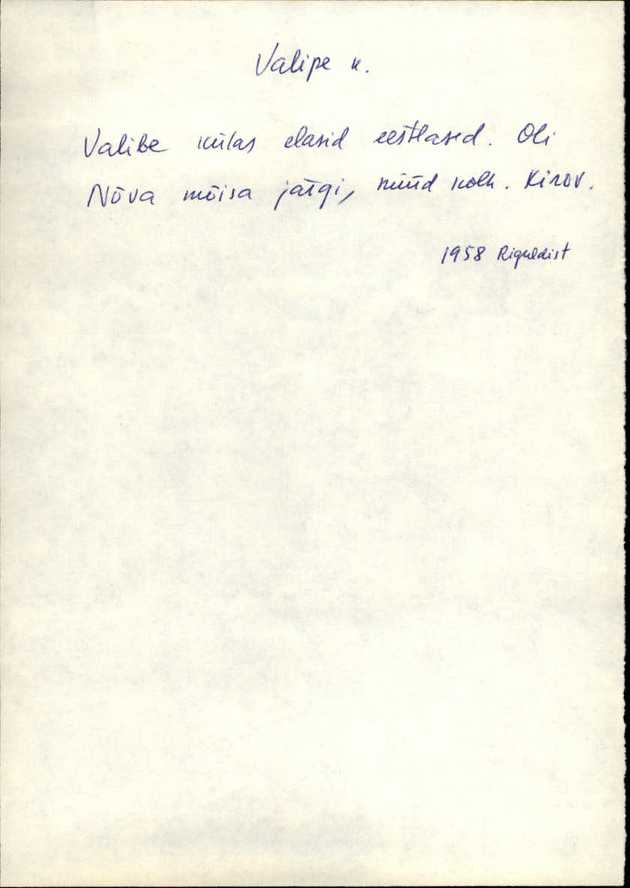 Valipe k.
Valibe külas elasid eestlased. Oli
Nõva mõisa järgi, nüüd kolh. Kirov.
1958 Riguldist